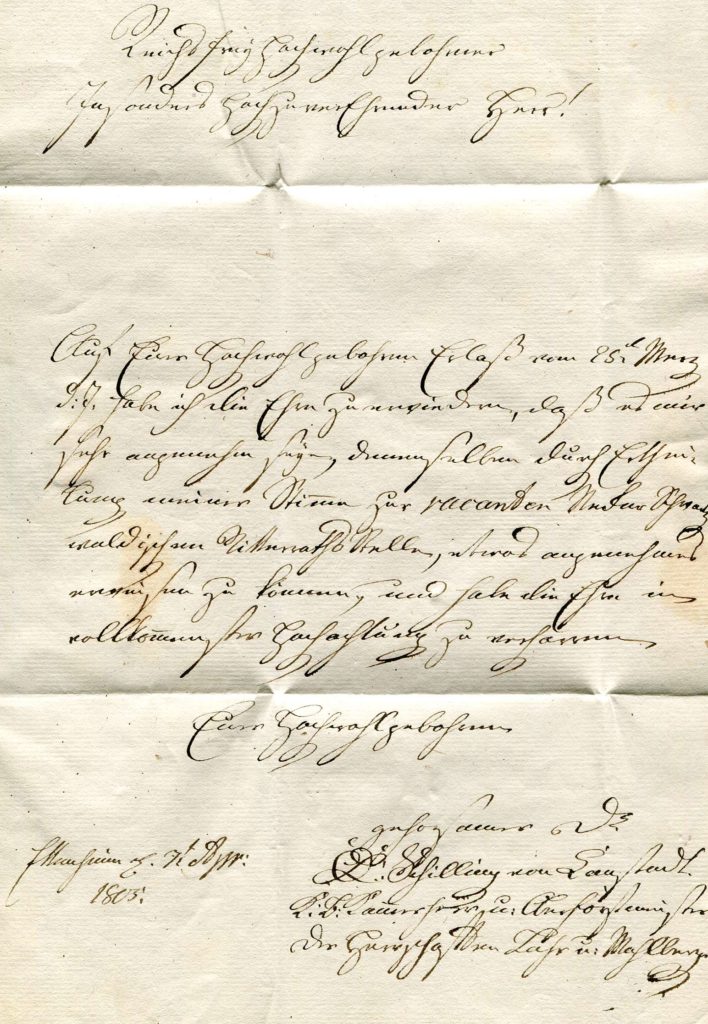 Reichs frey Hochwohlgebohrner
Insonders HochzuverEhrender Herr!
Auf Euer Hochwohlgebohren Erlaß vom 25.t Merz
d: J: habe ich die Ehre zu erwiedern, daß es mir
sehr angenehm seye, demenselben durch Erthei-
lung meiner Stimme zur vacanten Nekar Schwartz
waldischen Ritterraths Stelle, etwas angenehmes
erweisen zu können, und habe die Ehre in
vollkommenster Hochachtung zu verharren
Euer Hochwohlgebohren
gehorsamer Dr
Ettenheim d. 7t Apr:
1803.
Schilling von Canstadt.
K: B: Kammerherr u: Oberforstmeister
der Herrschaften Lahr u: Mahlberg